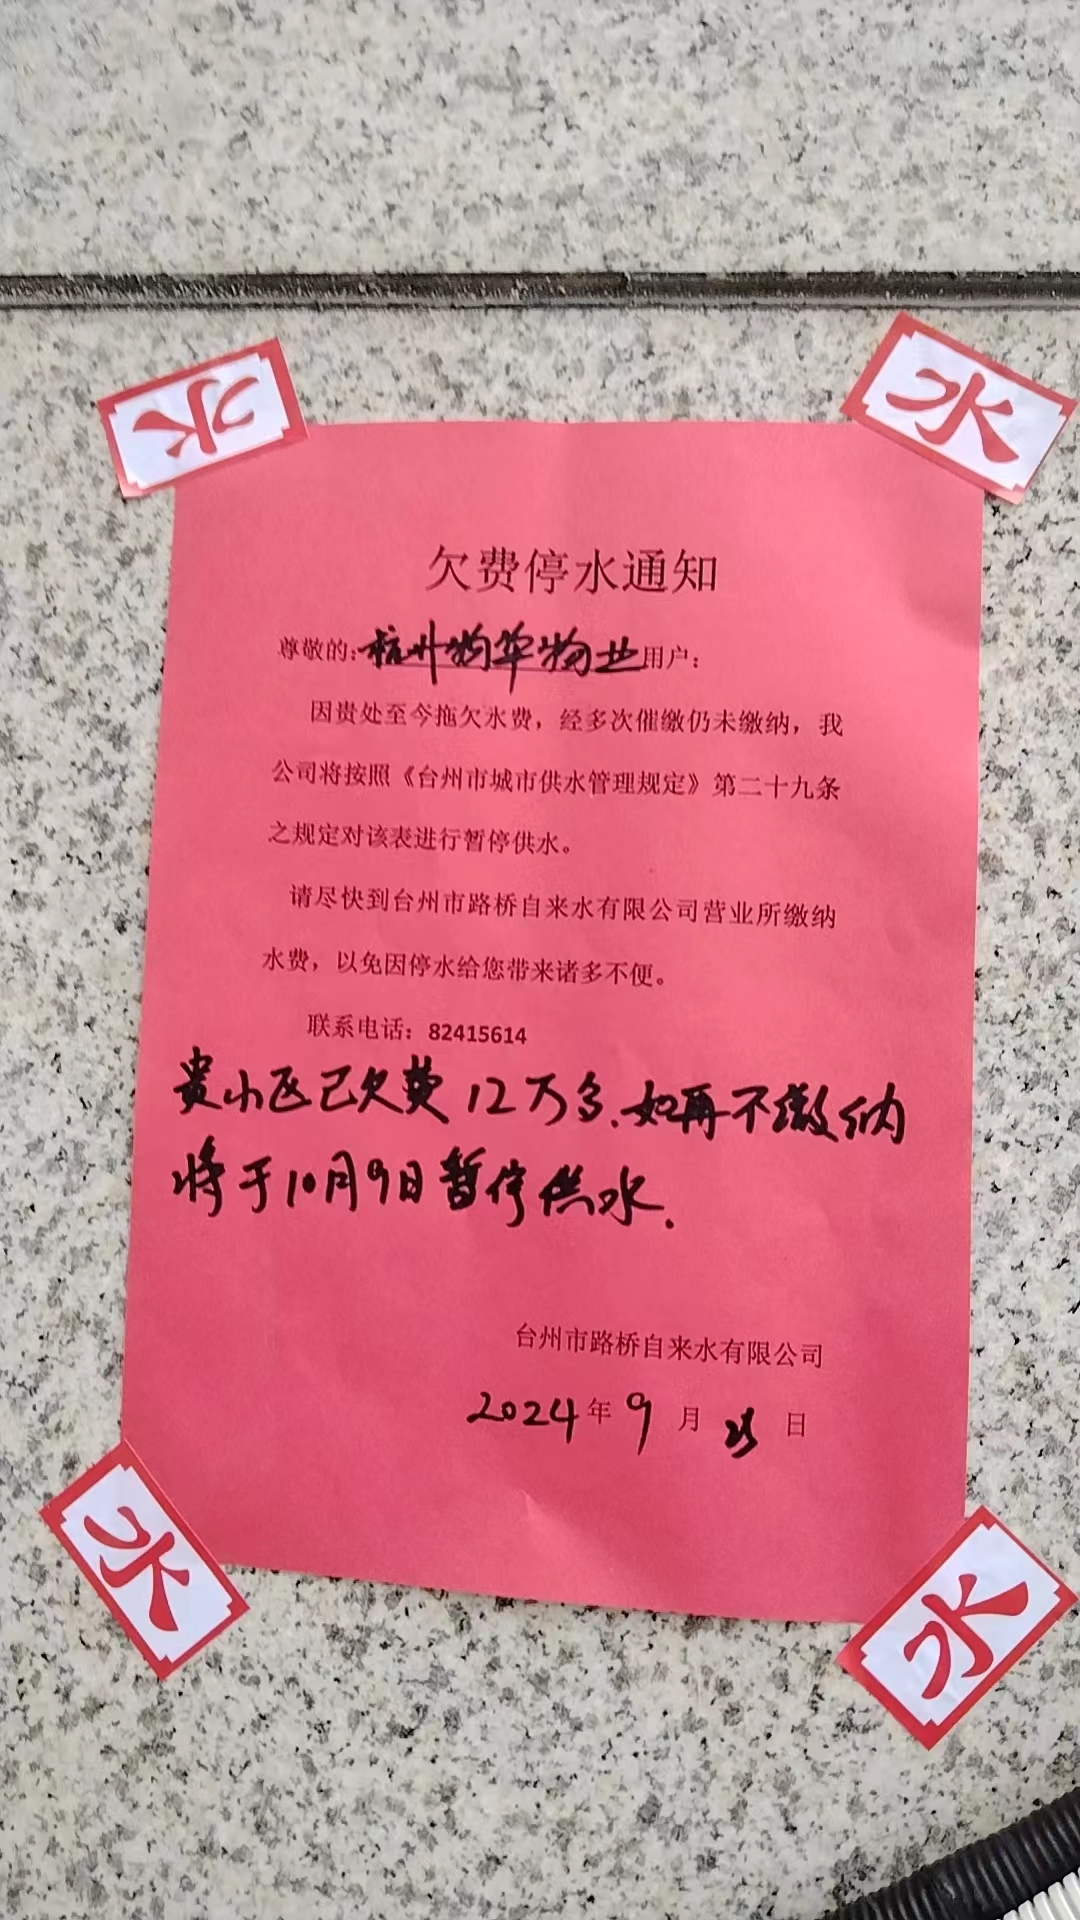 水
水
欠费停水通知
尊敬的:杭州物华物业用户:
因贵处至今拖欠水费，经多次催缴仍未缴纳，我
公司将按照《台州市城市供水管理规定》第二十九条
之规定对该表进行暂停供水。
请尽快到台州市路桥自来水有限公司营业所缴纳
水费，以免因停水给您带来诸多不便。
联系电话：82415614
贵小区已欠费12万多.如再不缴纳
将于10月9日暂停供水.
台州市路桥自来水有限公司
2024年9月 日
水
水